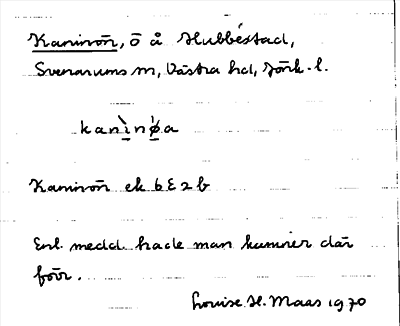 Kaninön, ö å Hubbéstad,
Svenarums sn, Västra hd, Jönk. l.
kanìnø̀a
Kaninön ek 6E2b
Enl. medd. hade man kaniner där
förr.
Louise H. Maas 1970